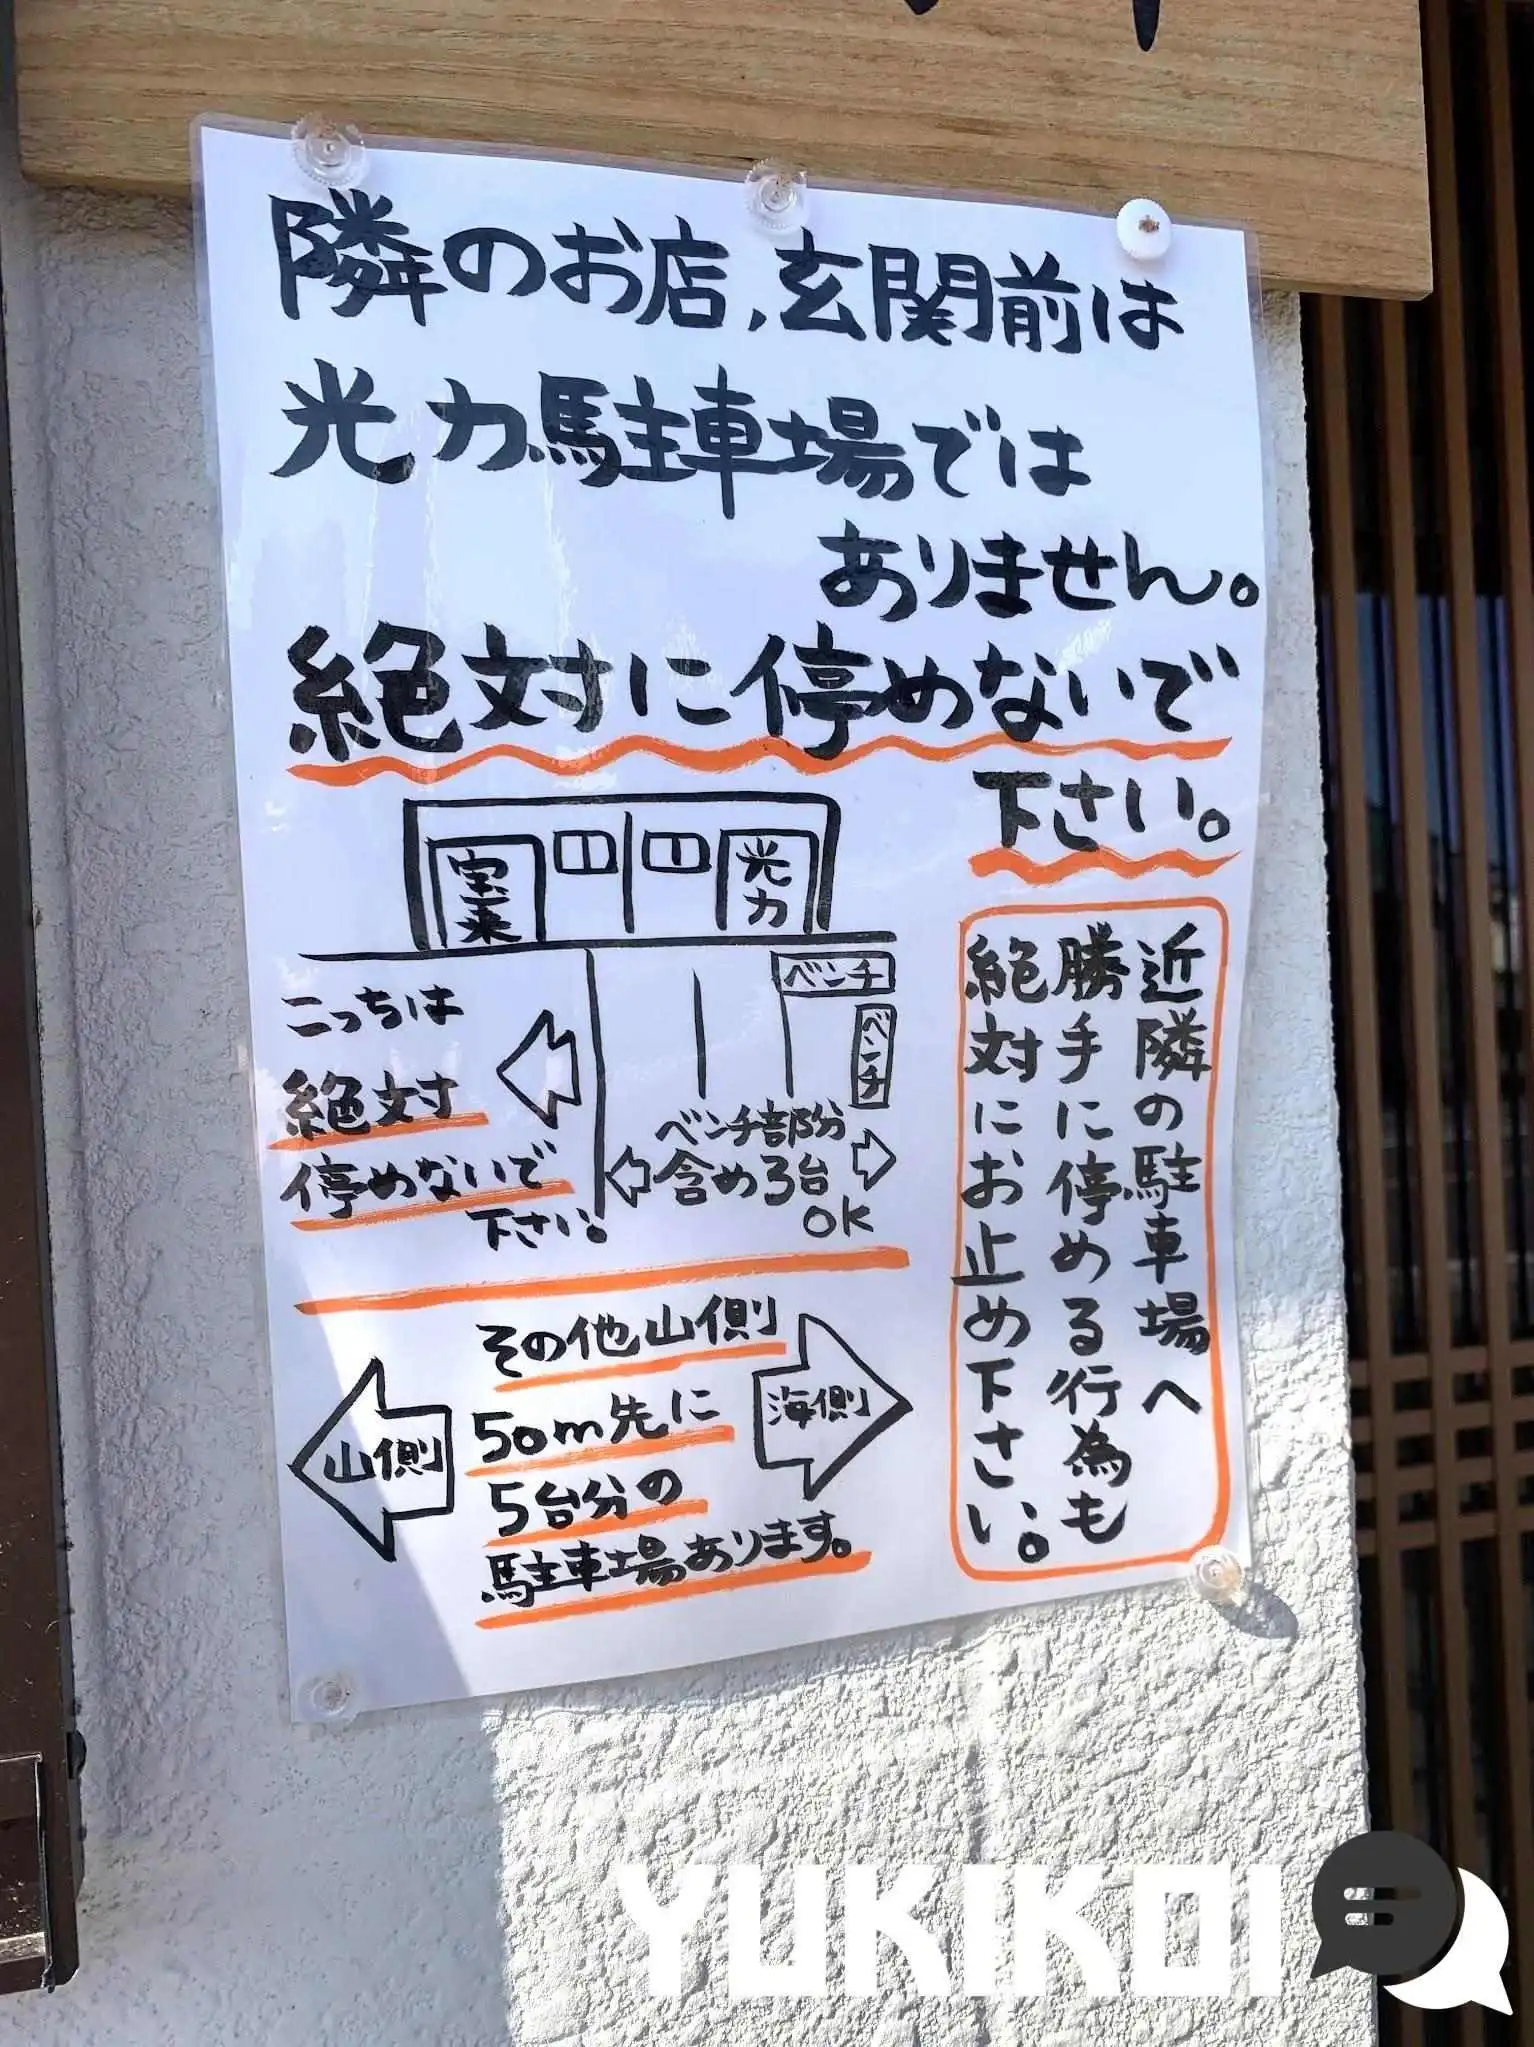 隣のお店,玄関前は
光力駐車場では
ありません。
絶対に停めないで
下さい。
宝来
光力
ベンチ
ベンチ
こっちは
絶対
停めないで
下さい。
ベンチ部分
含め3台
OK
近隣の駐車場へ
勝手に停める行為も
絶対にお止め下さい。
その他山側
50m先に
5台分の
駐車場あります。
山側
海側
YUKIKOI